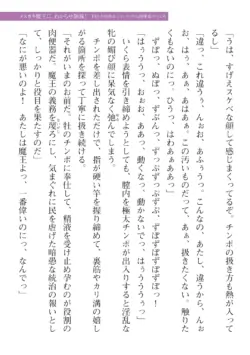 「うは、すげえスケベな顔して感じまくってるな。チンポの扱き方も手
「違っ、これは違うぅ、んおぉ、あふぅうっ、こんなの、あたし、違うから、んお
おぉ、はぁはぁ、あぁぁ、この汚いものだって、あぁ、扱きたくない、触りた
くないいっ、ひぃぃ、はぁぁぁぁっ」
ずっぷずっぷ、ずぶぶぶぶ、ずぶっ、ずぼずぼずぼずぼずぼっ!
「はぅうぅっ、おぉぉっ、あぁっ、動くなっ、動かないでっ、はぅうぅうぅっ」
いくら表情を引き締めようとしても、膣内を極太チンポが出入りすると淫乱な
牝の媚び顔に呆気なく弛んでしまう。
チンポを差し出されただけで、指が硬い竿を握り締めて、裏筋やカリ溝の嬉し
がる箇所を探って丁寧に扱き続ける。
「それがいまのお前だ、牡のチンポに奉仕して、精液を受け止め孕むのが役割の
肉便器だ、魔王の義務を蔑ろにし、気まぐれに民を虐げた暗愚な統治の報いとし
て、しっかりと役目を果たすのだ」
「なにが悪いのよ! あたしは魔王よっ、一番偉いのにっ、なんでっ」